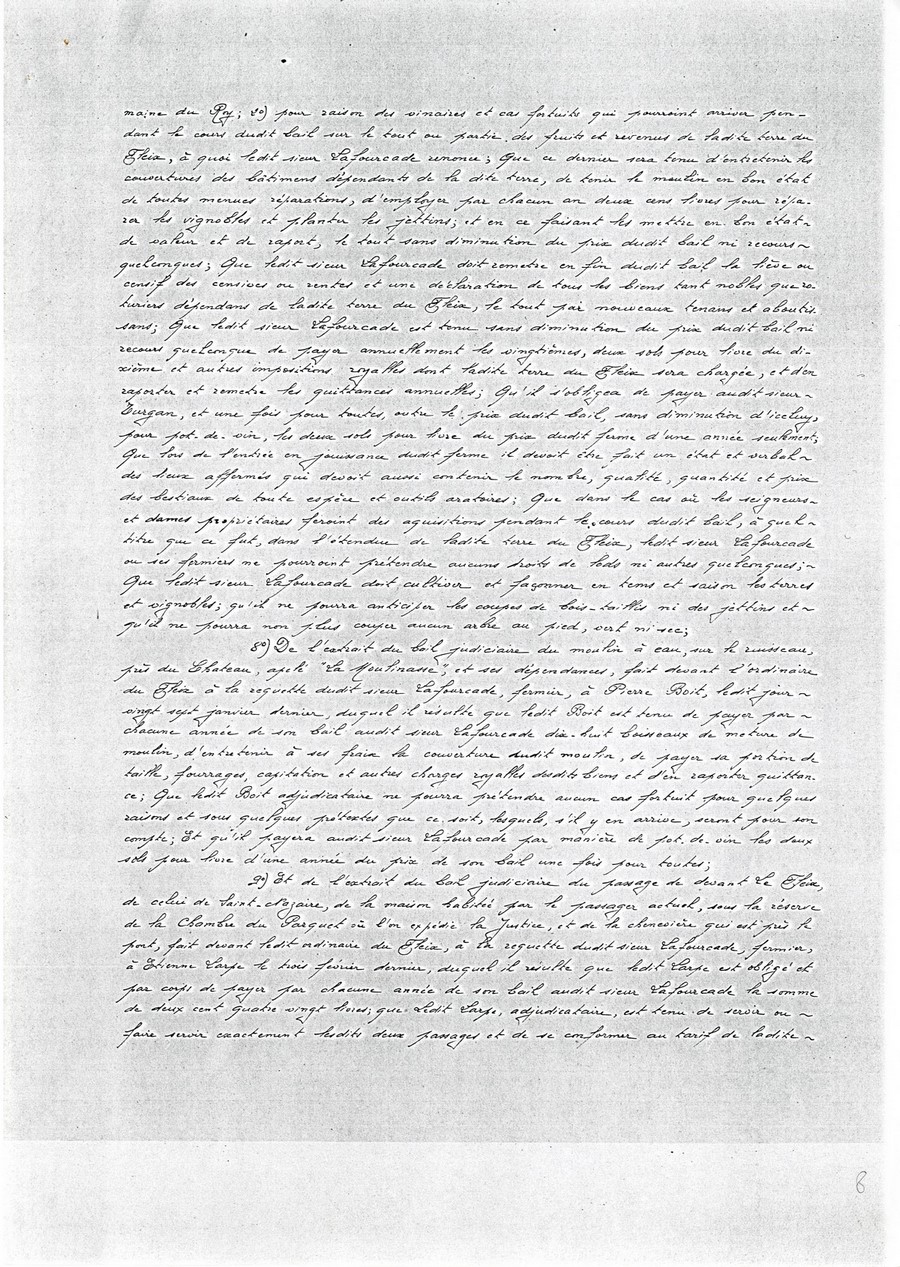 maine du Roy; 2o) pour raison des vimaires et cas fortuits qui pourroint arriver pen-
dant le cours dudit bail sur le tout ou partie des fruits et revenus de ladite terre du
Fleix, à quoi ledit sieur Lafourcade renonce; Que ce dernier sera tenu d'entretenir les
couvertures des bâtimens dépendants de la dite terre, de tenir le moulin en bon état
de toutes menues réparations, d'employer par chacun an deux cens livres pour répa-
rer les vignobles et planter les jettins; et en ce faisant les mettre en bon état ~
de valeur et de raport, le tout sans diminution du prix dudit bail ni recours ~
quelconques; Que ledit sieur Lafourcade doit remetre en fin dudit bail la liève ou
censif des censives ou rentes et une déclaration de tous les biens tant nobles que ro-
turiers dépendans de ladite terre du Fleix, le tout par nouveaux tenans et aboutis-
sans; Que ledit sieur Lafourcade est tenu sans diminution du prix dudit bail ni
recours quelconque de payer annuellement les vingtièmes, deux sols pour livre du di-
xième et autres impositions royalles dont ladite terre du Fleix sera chargée, et d'en
raporter et remetre les quittances annuelles; Qu'il s'obligea de payer audit sieur -
Durgan, et une fois pour toutes, outre le prix dudit bail, sans diminution d'iceluy,
pour pot-de-vin, les deux sols pour livre du prix dudit ferme d'une année seulement;
Que lors de l'entrée en jouissance dudit ferme il devoit être fait un état et verbal ~
des lieux affermés qui devoit aussi contenir le nombre, qualité, quantité et prix
des bestiaux de toute espèce et outils aratoires; Que dans le cas où les seigneurs -
et dames propriétaires feroint des aquisitions pendant le cours dudit bail, à quel ~
titre que ce fut, dans l'étendue de ladite terre du Fleix, ledit sieur Lafourcade
ou ses fermiers ne pourroint prétendre aucuns droits de lods ni autres quelconques; -
Que ledit sieur Lafourcade doit cultiver et façonner en tems et saison les terres
et vignobles; qu'il ne pourra anticiper les coupes de bois-taillis ni des jettins et ~
qu'il ne pourra non plus couper aucun arbre au pied, vert ni sec;
8o) De l'extrait du bail judiciaire du moulin à eau, sur le ruisseau,
près du Chateau, apelé "La Moulinasse", et ses dépendances, fait devant l'ordinaire
du Fleix à la requette dudit sieur Lafourcade, fermier, à Pierre Boit, ledit jour ~
vingt sept janvier dernier, duquel il résulte que ledit Boit est tenu de payer par ~
chacune année de son bail audit sieur Lafourcade dix-huit boiseaux de meture de
moulin, d'entretenir à ses fraix la couverture dudit moulin, de payer sa portion de
taille, fourrages, capitation et autres charges royalles desdits biens et d'en raporter quittan-
ce; Que ledit Boit adjudicataire ne pourra prétendre aucun cas fortuit pour quelques
raisons et sous quelques prétextes que ce soit, lesquels, s'il y en arrive, seront pour son
compte; Et qu'il payera audit sieur Lafourcade par manière de pot-de-vin les deux
sols pour livre d'une année du prix de son bail une fois pour toutes;
9o) Et de l'extrait du bail judiciaire du passage de devant Le Fleix,
de celui de Saint-Nazaire, de la maison habitée par le passager actuel, sous la réserve
de la Chambre du Parquet où l'on expédie la Justice, et de la chenevière qui est près le
port, fait devant ledit ordinaire du Fleix, à la requette dudit sieur Lafourcade, fermier,
à Etienne Larpe le trois février dernier, duquel il résulte que ledit Larpe est obligé et
par corps de payer par chacune année de son bail audit sieur Lafourcade la somme
de deux cent quatre vingt livres; que Ledit Larpe, adjudicataire, est tenu de servir ou ~
faire servir exactement lesdits deux passages et de se conformer au tarif de ladite ~
8